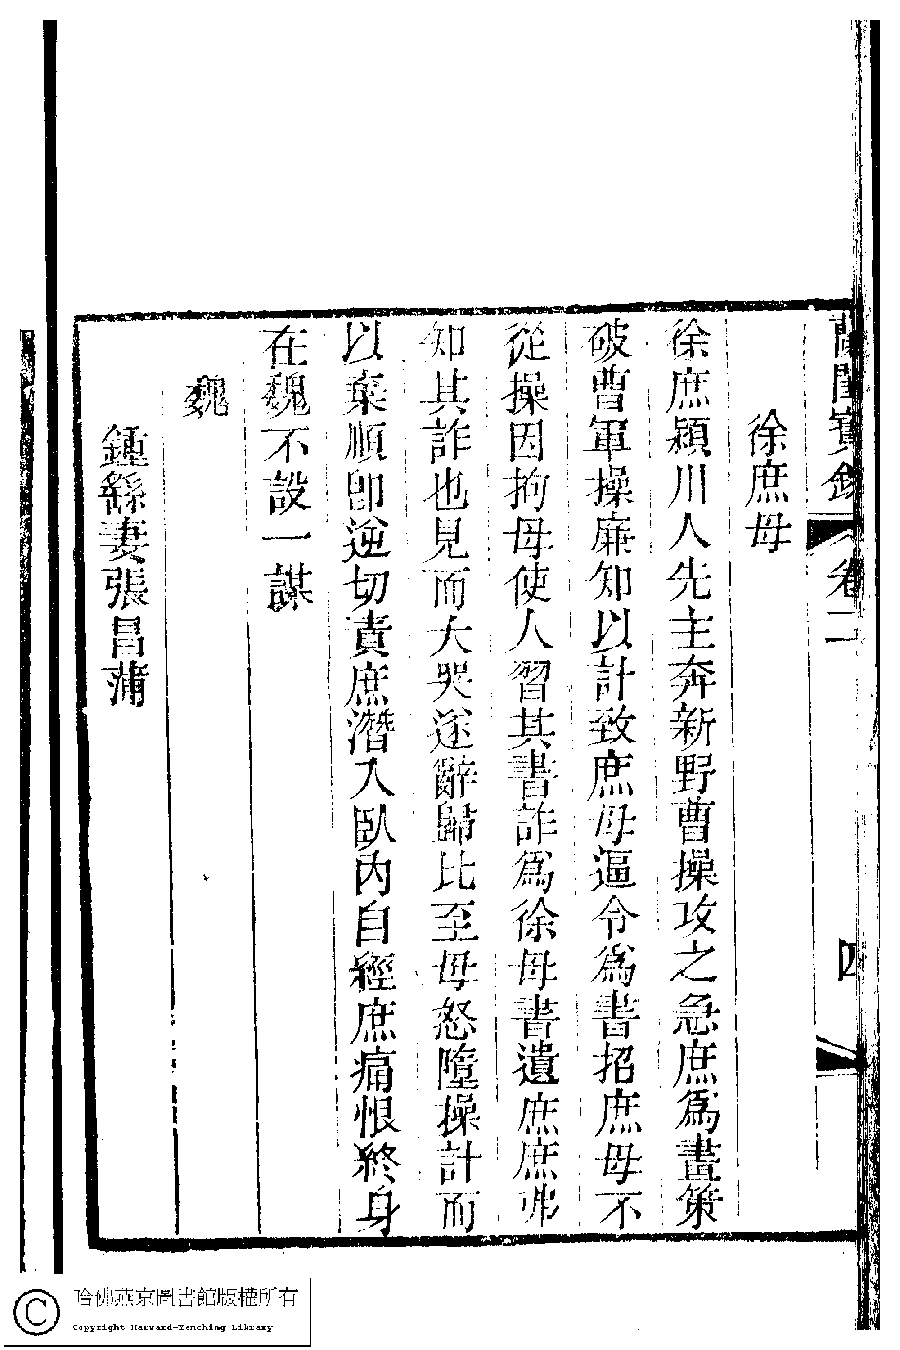 蘭閨寶錄 卷二 四
徐庶母
徐庶潁川人先主奔新野曹操攻之急庶爲畫策
破曹軍操廉知以計致庶母逼令爲書招庶母不
從操因拘母使人習其書詐爲徐母書遺庶庶弗
知其詐也見而大哭遂辭歸比至母怒墮操計而
以棄順卽逆切責庶潛入臥內自經庶痛恨終身
在魏不設一謀
魏
鍾繇妻張昌蒲
哈佛燕京圖書館版權所有
Copyright Harvard-Yenching Library